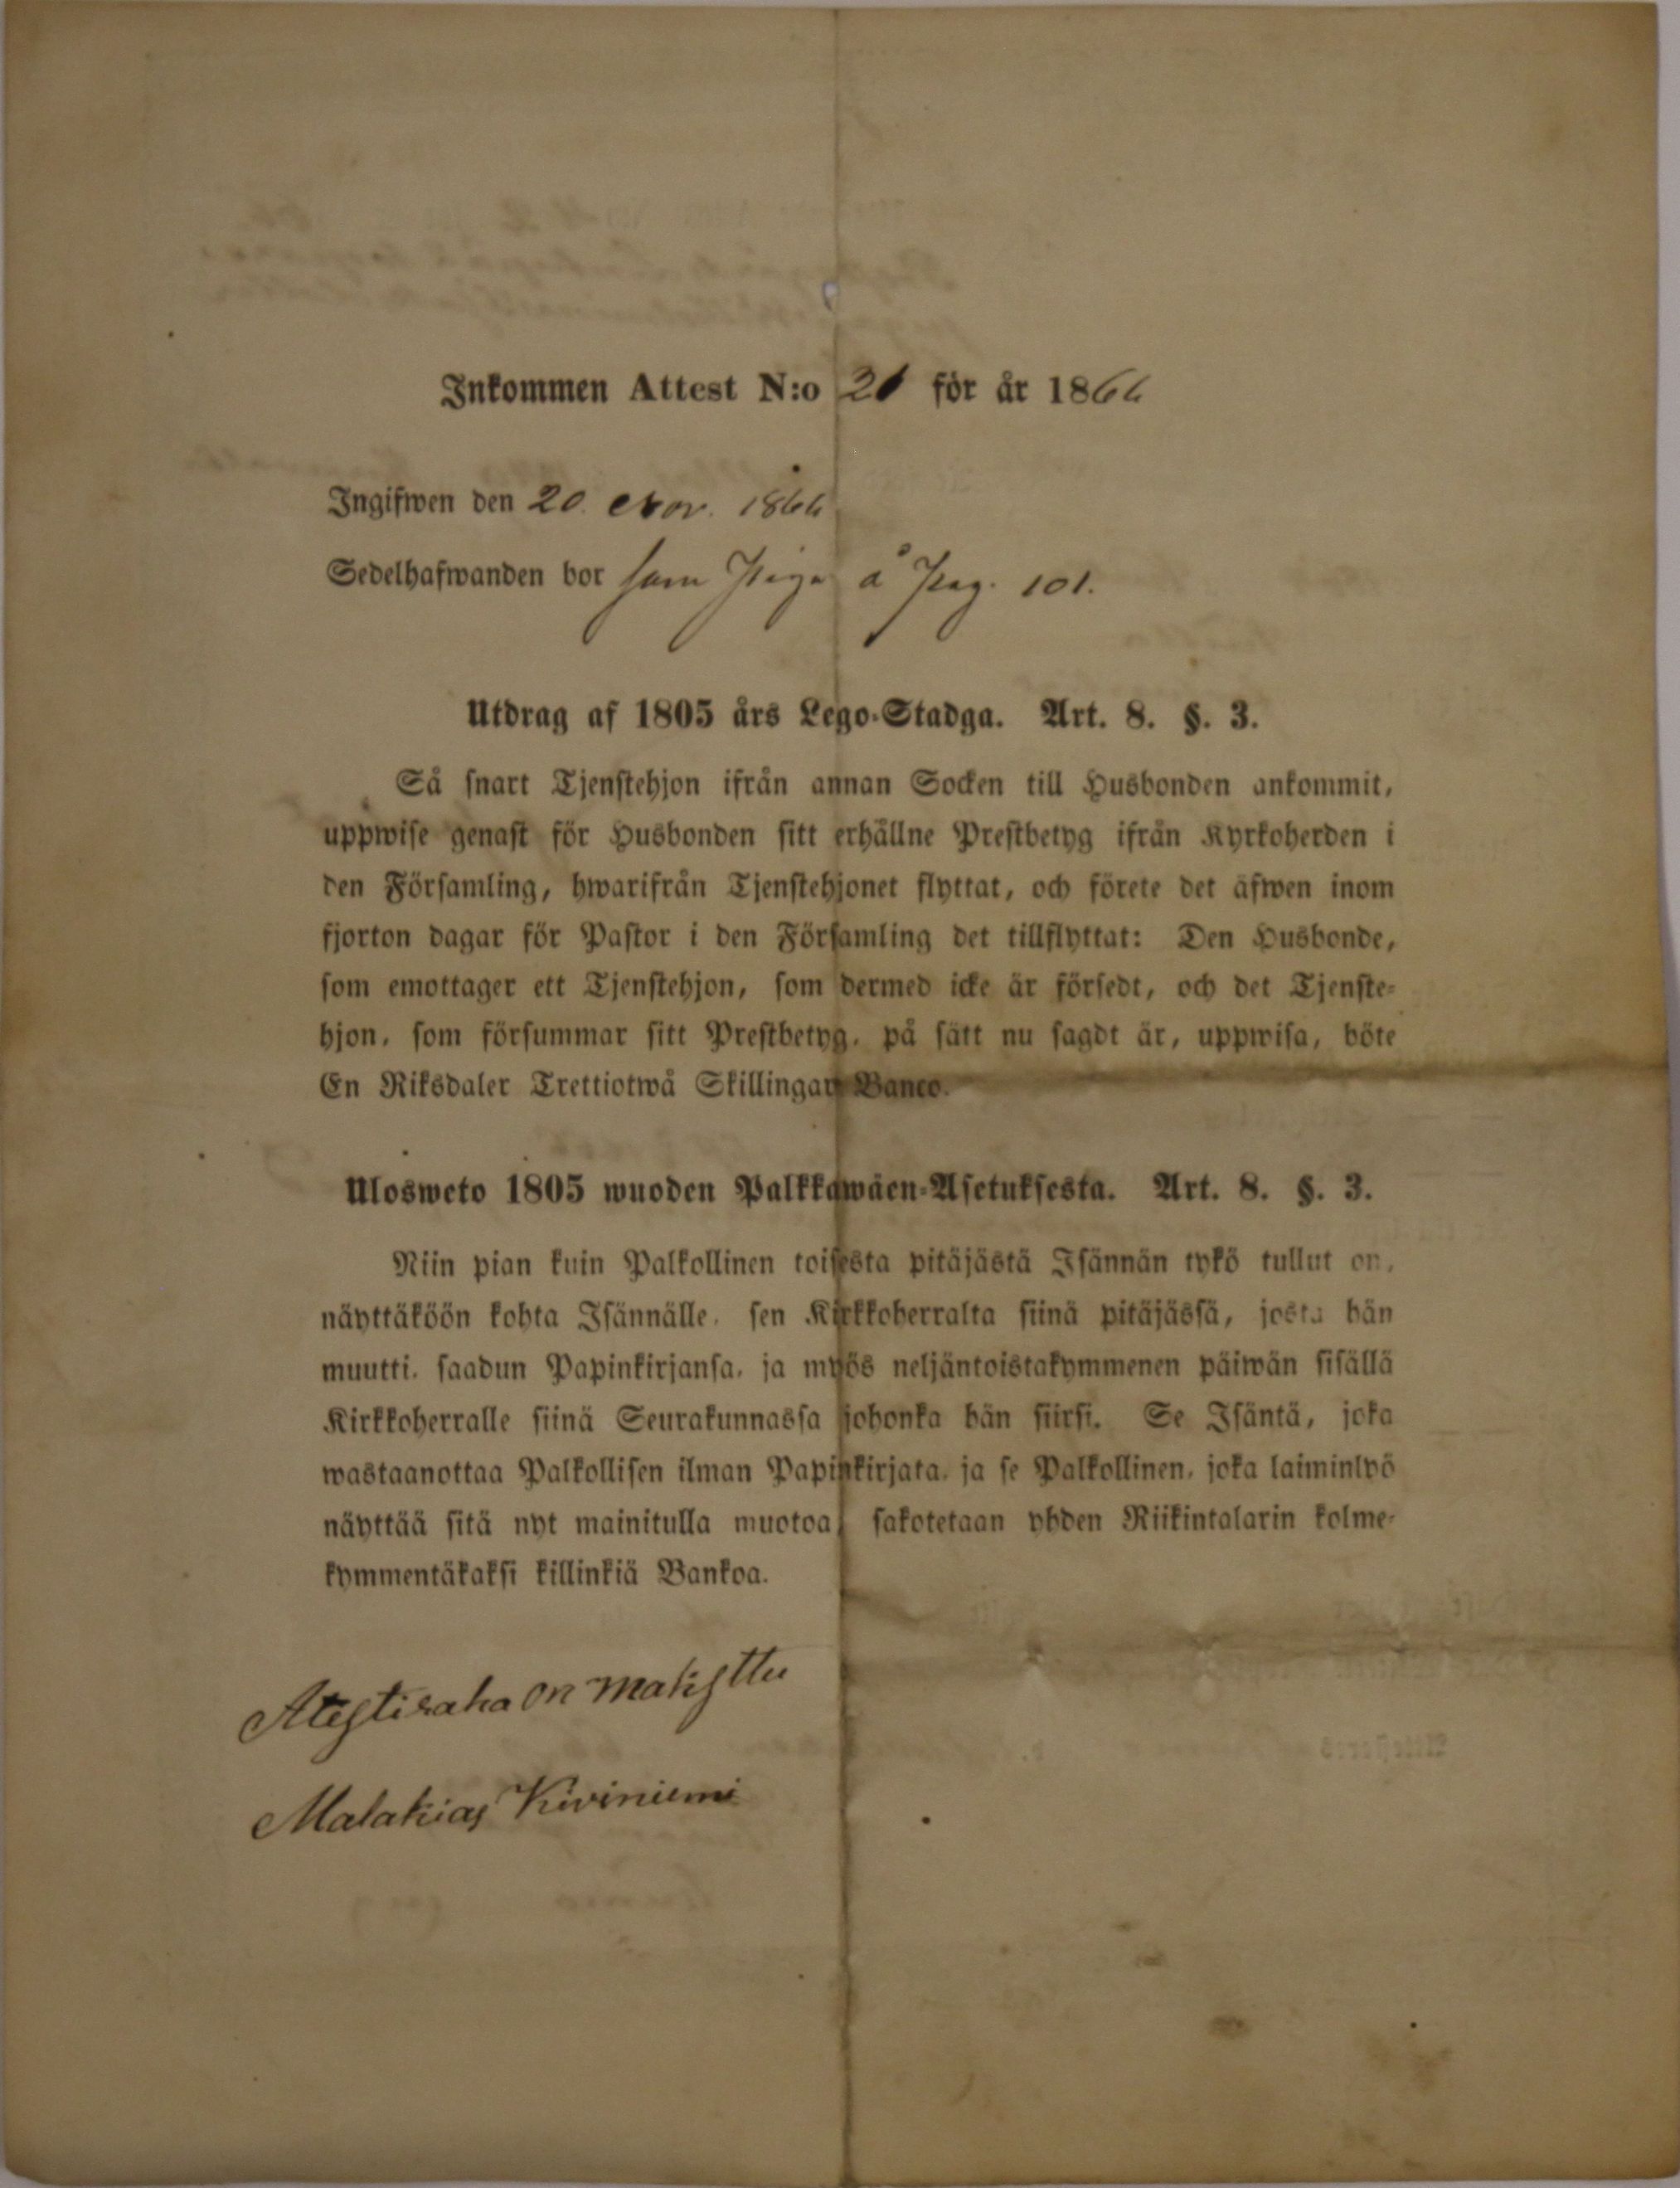 Inkommen Attest N:o 21 för år 1866
Ingifwen den 20. Nov. 1866
Sedelhafwanden bor som Piga å Pag. 101.
Utdrag af 1805 års Lego-Stadga. Art. 8. §. 3.
Så snart Tjenstehjon ifrån annan Socken till Husbonden ankommit,
uppwise genast för Husbonden sitt erhållne Prestbetyg ifrån Kyrkoherden i
den Församling, hwarifrån Tjenstehjonet flyttat, och förete det äfwen inom
fjorton dagar för Pastor i den Församling det tillflyttat: Den Husbonde,
som emottager ett Tjenstehjon, som dermed icke är försedt, och det Tjenste-
hjon, som försummar sitt Prestbetyg, på sätt nu sagdt är, uppwisa, böte
En Riksdaler Trettiotwå Skillingar Banco.
Ulosweto 1805 wuoden Palkkawäen-Asetuksesta. Art. 8. §. 3.
Niin pian kuin Palkollinen toisesta pitäjästä Isännän tykö tullut on,
näyttäköön kohta Isännälle, sen Kirkkoherralta siinä pitäjässä, josta hän
muutti, saadun Papinkirjansa, ja myös neljäntoistakymmenen päiwän sisällä
Kirkkoherralle siinä Seurakunnassa johonka hän siirsi. Se Isäntä, joka
wastaanottaa Palkollisen ilman Papinkirjata, ja se Palkollinen, joka laiminlyö
näyttää sitä nyt mainitulla muotoa, sakotetaan yhden Riikintalarin kolme-
kymmentäkaksi killinkiä Bankoa.
Atestiraha on maksttu
Malakias Kiviniemi